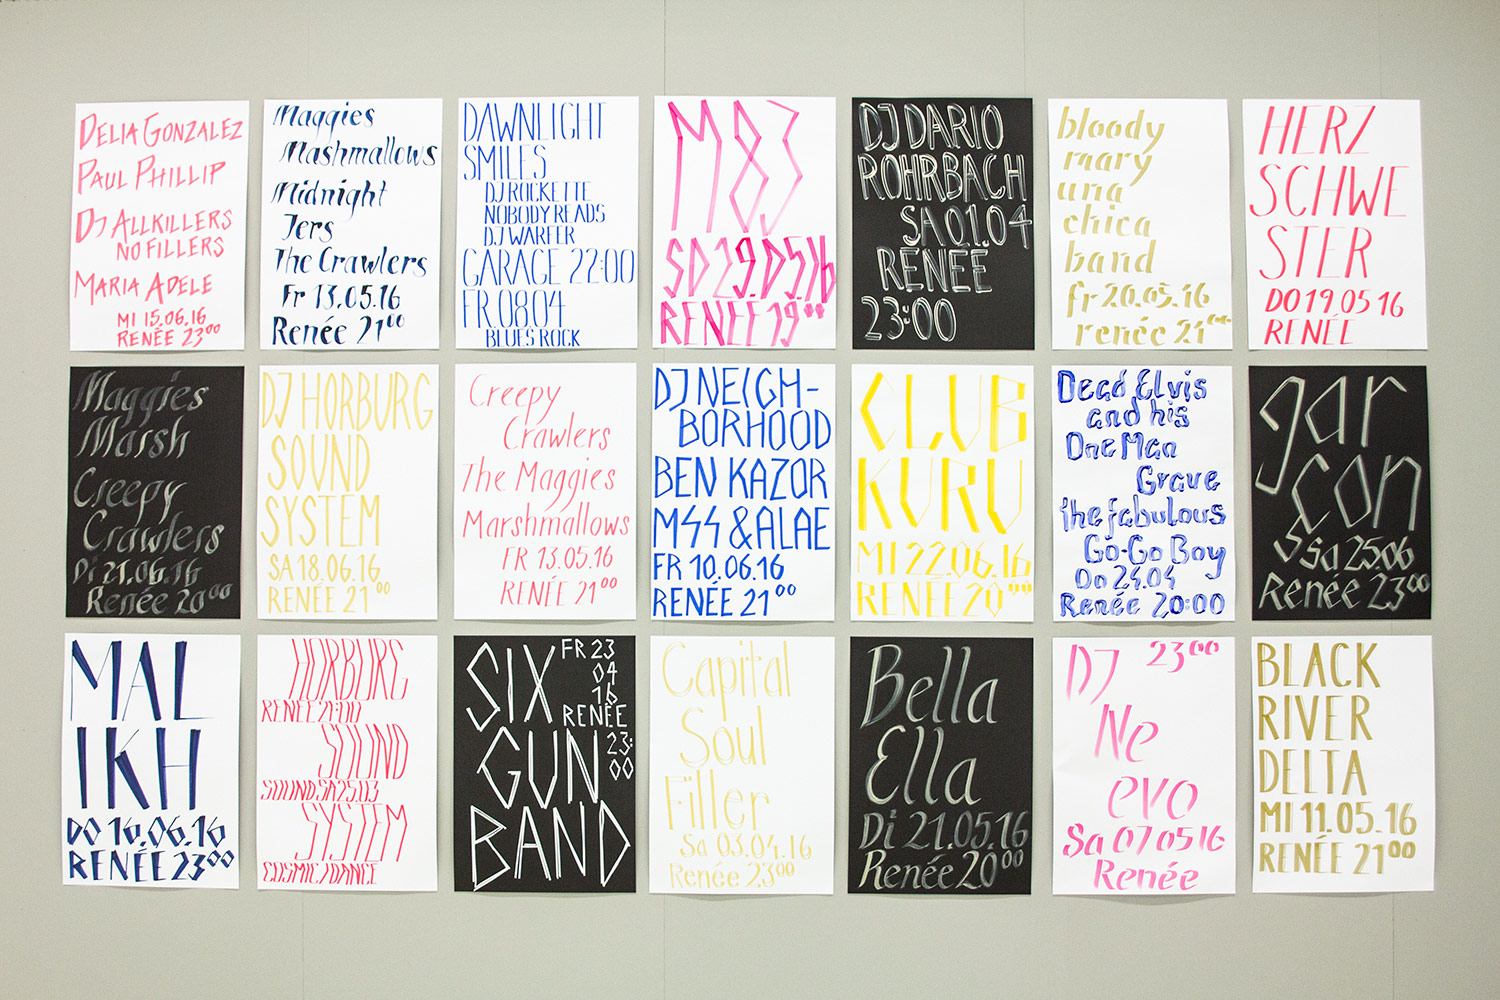 DELIA GONZALEZ
PAUL PHILLIP
DJ ALLKILLERS
NO FILLERS
MARIA ADELE
MI 15.06.16
RENÉE 23⁰⁰
Maggies
Mashmallows
Midnight
Jers
The Crawlers
Fr 13.05.16
Renée 21⁰⁰
DAWNLIGHT
SMILES
DJ ROCKETTE
NOBODY READS
DJ WARFER
GARAGE 22:00
FR 08.04
BLUES ROCK
M83
SO 29.05.16
RENÉE 19⁰⁰
DJ DARIO
ROHRBACH
SA 01.04
RENÉE
23:00
bloody
mary
una
chica
band
fr 20.05.16
renée 21⁰⁰
HERZ
SCHWE
STER
DO 19.05 16
RENÉE
Maggies
Marsh
Creepy
Crawlers
Di 21.06.16
Renée 20⁰⁰
DJ HORBURG
SOUND
SYSTEM
SA 18.06.16
RENÉE 21⁰⁰
Creepy
Crawlers
The Maggies
Marshmallows
FR 13.05.16
RENÉE 21⁰⁰
DJ NEIGH-
BORHOOD
BEN KAZOR
MSS & ALAE
FR 10.06.16
RENÉE 21⁰⁰
CLUB
KURU
MI 22.06.16
RENÉE 20⁰⁰
Dead Elvis
and his
One Man
Grave
the fabulous
Go-Go Boy
Do 24.04
Renée 20:00
gar
con
s Sa 25.06
Renée 23⁰⁰
MAL
IKH
DO 16.06.16
RENÉE 23⁰⁰
HORBURG
RENÉE 21:00
SOUND
SOUND, SA 25.03
SYSTEM
COSMIC/DANCE
SIX
FR 23
04
16
RENÉE
23:
00
GUN
BAND
Capital
Soul
Filler
Sa 03.04.16
Renée 23⁰⁰
Bella
Ella
Di 21.05.16
Renée 20⁰⁰
DJ 23⁰⁰
Ne
evo
Sa 07 05 16
Renée
BLACK
RIVER
DELTA
MI 11.05.16
RENÉE 21⁰⁰